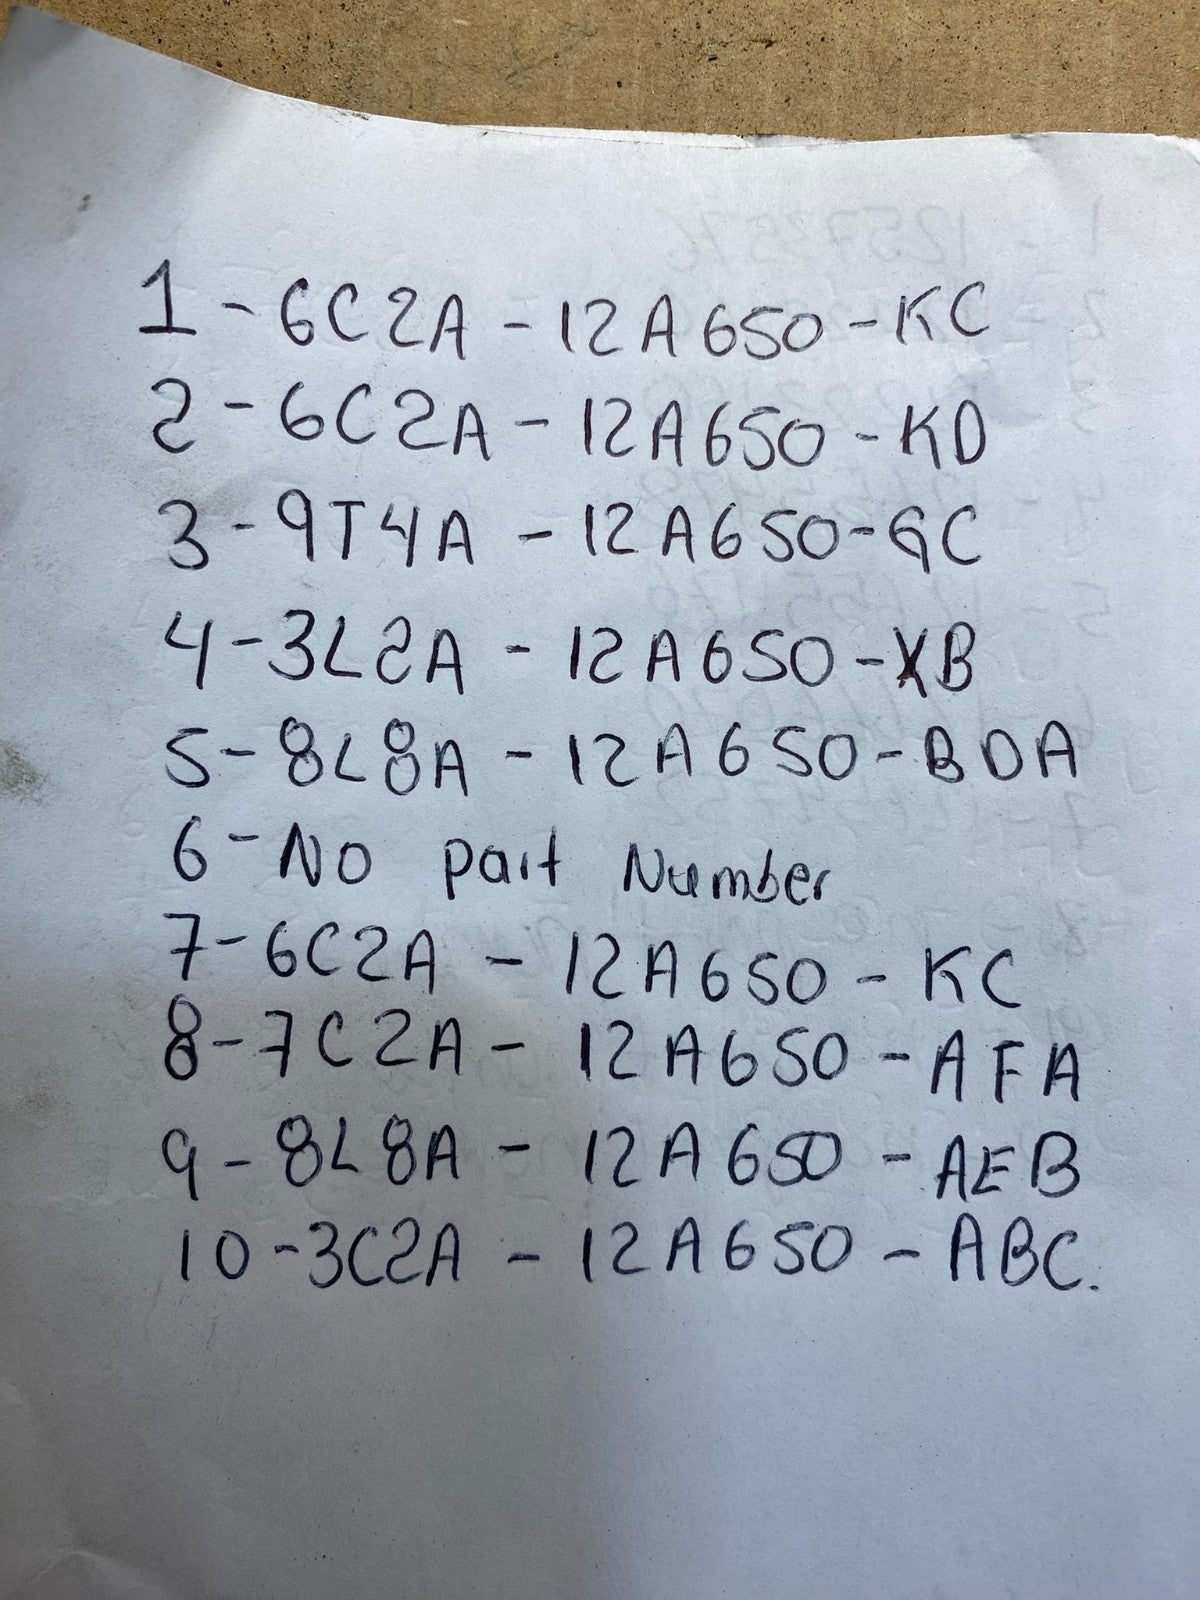 1-6C2A-12A650-KC
2-6C2A-12A650-KD
3-9T4A-12A650-GC
4-3L2A-12A650-XB
5-8L8A-12A650-BDA
6-No part Number
7-6C2A-12A650-KC
8-7C2A-12A650-AFA
9-8L8A-12A650-AEB
10-3C2A-12A650-ABC.